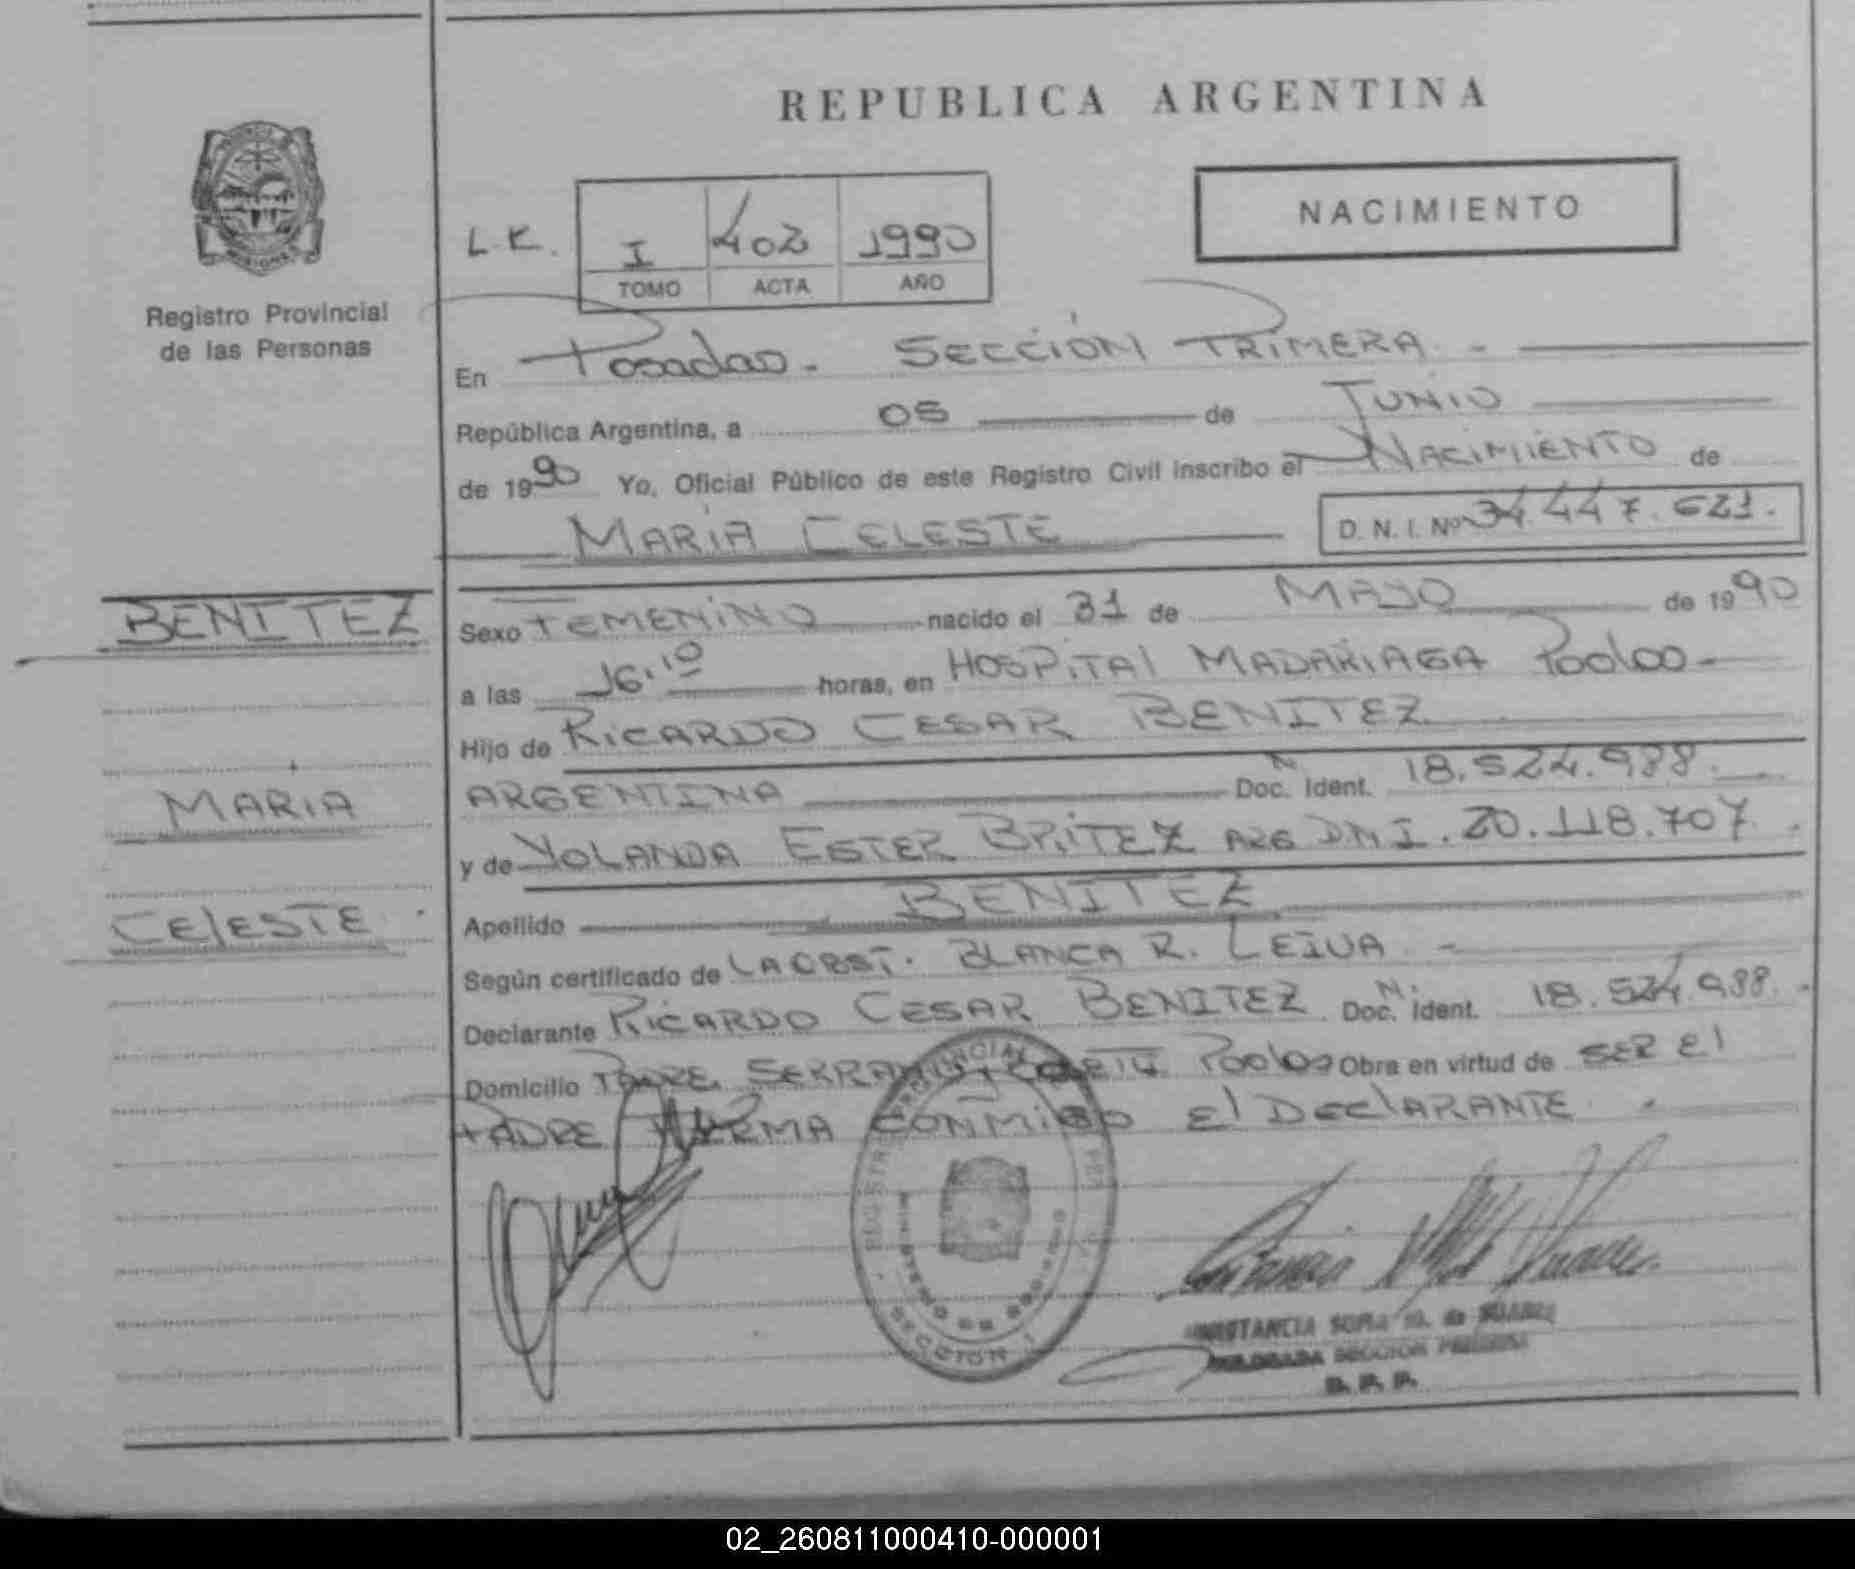 REPUBLICA ARGENTINA
NACIMIENTO
L.K. I 402 1990
TOMO ACTA AÑO
Registro Provincial
de las Personas
En Posadas. SECCIÓN PRIMERA.-
República Argentina, a 05 de JUNIO
de 1990 Yo, Oficial Público de este Registro Civil inscribo el NACIMIENTO de
MARIA CELESTE D. N. I. Nº 34.447.621.
BENITEZ
MARIA
CELESTE.
Sexo FEMENINO nacido el 31 de MAYO de 1990
a las 16.10 horas, en HOSPITAL MADARIAGA
Hijo de RICARDO CESAR BENITEZ
ARGENTINA Doc. Ident. 18.524.988.
y de YOLANDA ESTER BRITEZ ARG DNI. 20.118.707.
Apellido BENITEZ
Según certificado de LA OBST. BLANCA R. LEIVA -
Declarante RICARDO CESAR BENITEZ Doc. Ident. 18.524.988.
Domicilio PADRE Obra en virtud de SER El
PADRE FIRMA CONMIGO El DEClARANTE.
SECCION 1
02_260811000410-000001